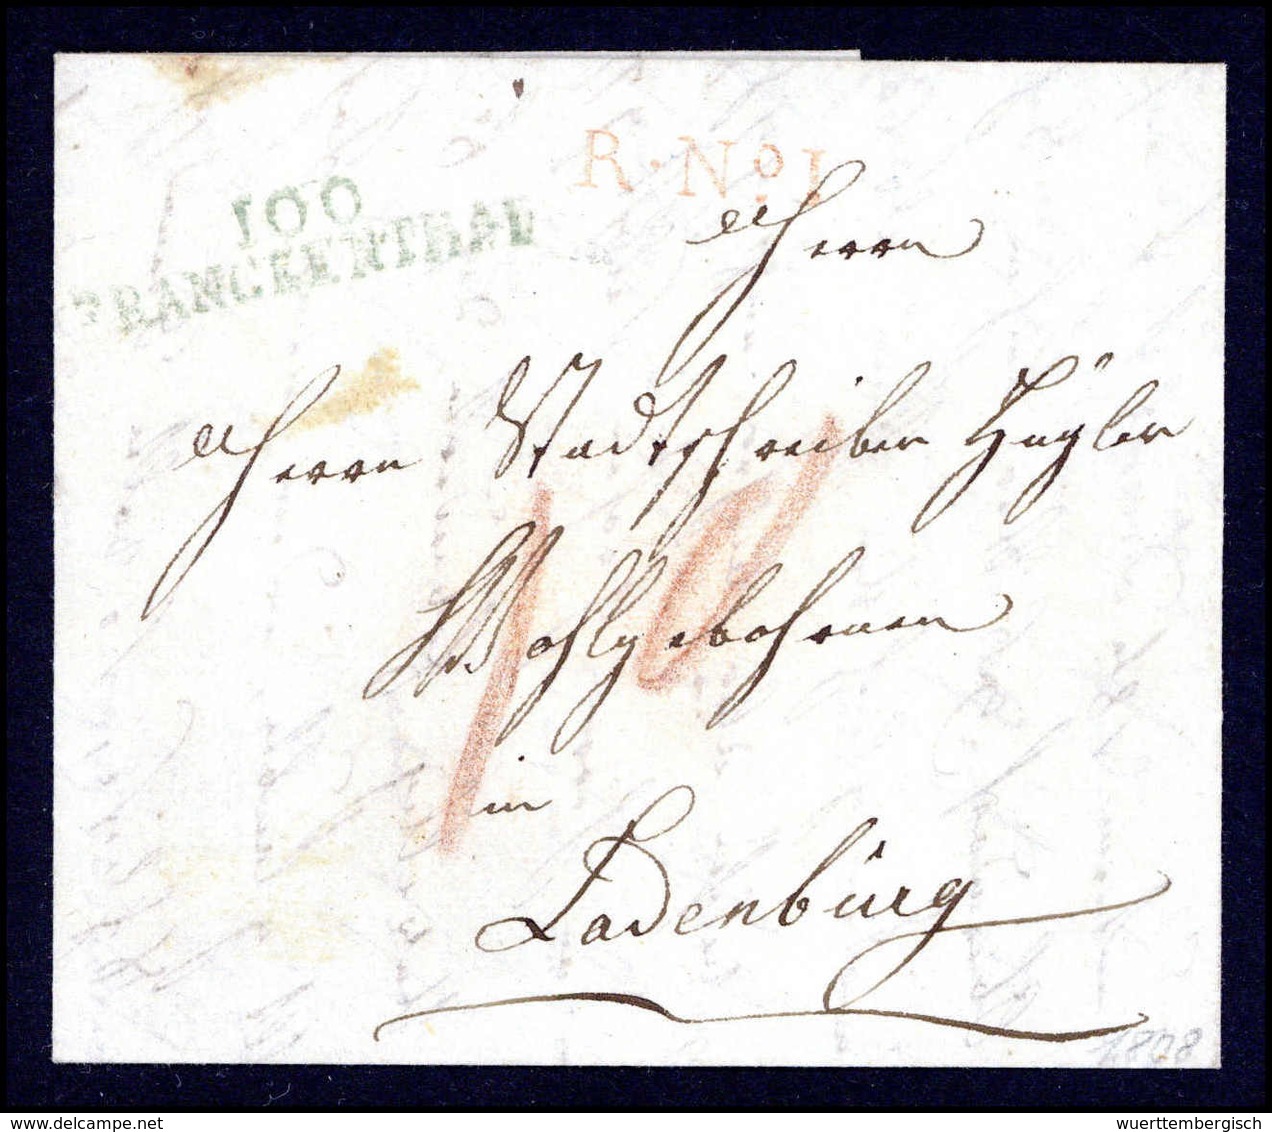 R. Nº. 1
100
FRANCKENTHAL
Herrn
Herrn Stadtschreiber Hügler
Wohlgebohrnen
in
Ladenburg
1808
delcampe.net
wuerttembergisch